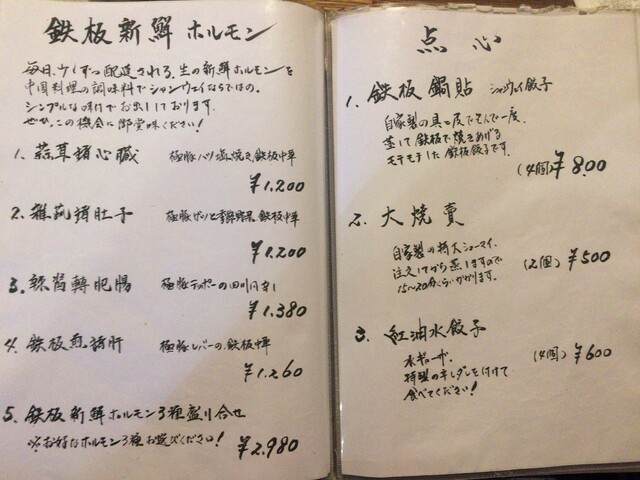 鉄板新鮮ホルモン
毎日、少しずつ配送される、生の新鮮ホルモンを
中国料理の調味料でシャンウェイならではの、
シンプルな味付でお出ししております。
ぜひ、この機会に御賞味ください!
1. 蒜茸猪心臓 極豚ハツ塩焼き鉄板中華
¥1,200
2. 雑蔬猪肚子 極豚ガツと季節野菜鉄板中華
¥1,200
3. 辣醤轉肥腸 極豚テッポーの四川
¥1,380
4. 鉄板魚猪肝 極豚レバーの鉄板中華
¥1,260
5. 鉄板新鮮ホルモン3種盛り合せ
※お好きなホルモン3種お選びください!
¥2,980
点心
1. 鉄板鍋貼 シャンウェイ餃子
自家製の具と皮でそんで一度、
蒸して鉄板で焼きあげる
モチモチした鉄板餃子です。
(4個)¥800
2. 大焼賣
自家製の特大シューマイ。
注文してから蒸しますので
15~20分くらいかかります。
(2個)¥500
3. 紅油水餃子
水ギョーザ。
特製の辛しダレを付けて
食べてください!
(4個)¥600